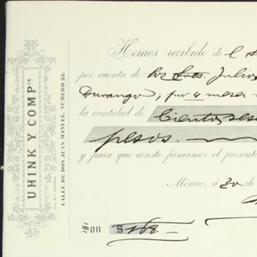 UHINK Y COMPIA
CALLE DE DON JUAN MANUEL, NÚMERO 22.
Hemos recibido de
por cuenta de los Sres. Julio
Durango, por 4 meses
la cantidad de Ciento
pesos.
y para que conste firmamos el present
México, á 30 de
Son $168